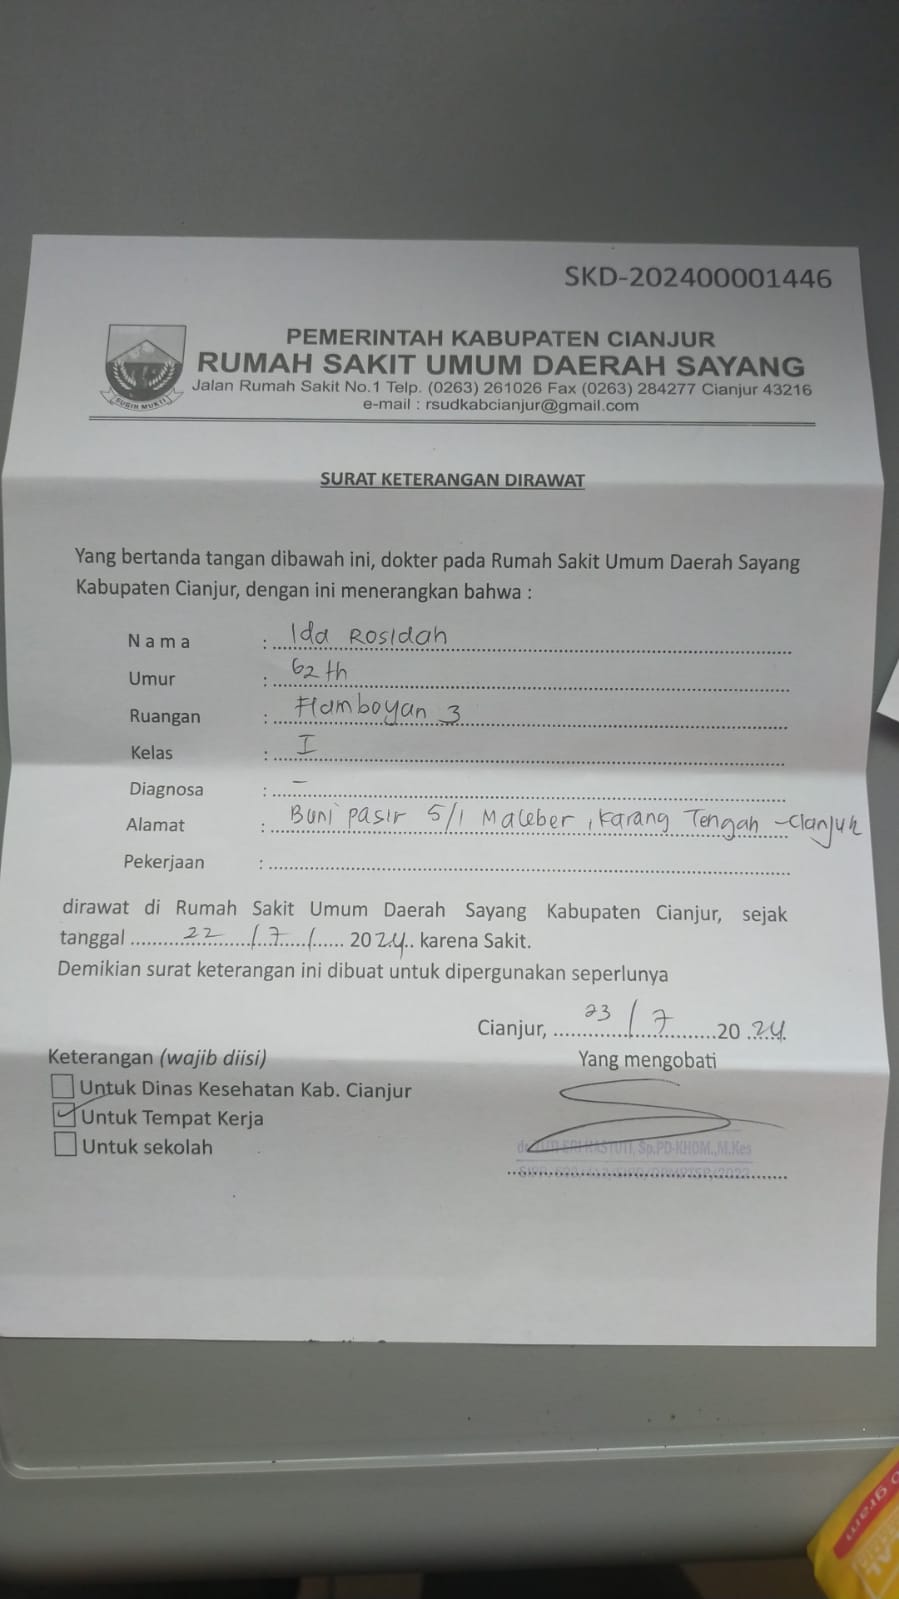 SKD-202400001446
PEMERINTAH KABUPATEN CIANJUR
RUMAH SAKIT UMUM DAERAH SAYANG
Jalan Rumah Sakit No.1 Telp. (0263) 261026 Fax (0263) 284277 Cianjur 43216
e-mail : rsudkabcianjur@gmail.com
SUGIH MUKTI
SURAT KETERANGAN DIRAWAT
Yang bertanda tangan dibawah ini, dokter pada Rumah Sakit Umum Daerah Sayang
Kabupaten Cianjur, dengan ini menerangkan bahwa :
Nama : Ida Rosidah
Umur : 62 th
Ruangan : Flamboyan 3
Kelas : I
Diagnosa : -
Alamat : Buni pasir 5/1 Maleber, Karang Tengah - Cianjur
Pekerjaan :
dirawat di Rumah Sakit Umum Daerah Sayang Kabupaten Cianjur, sejak
tanggal 22 / 7 / 2024 karena Sakit.
Demikian surat keterangan ini dibuat untuk dipergunakan seperlunya
Cianjur, 23 / 7 2024
Keterangan (wajib diisi)
Yang mengobati
Untuk Dinas Kesehatan Kab. Cianjur
Untuk Tempat Kerja
Untuk sekolah
HASTUTI, Sp.PD-KHOM.,M.Kes
gram